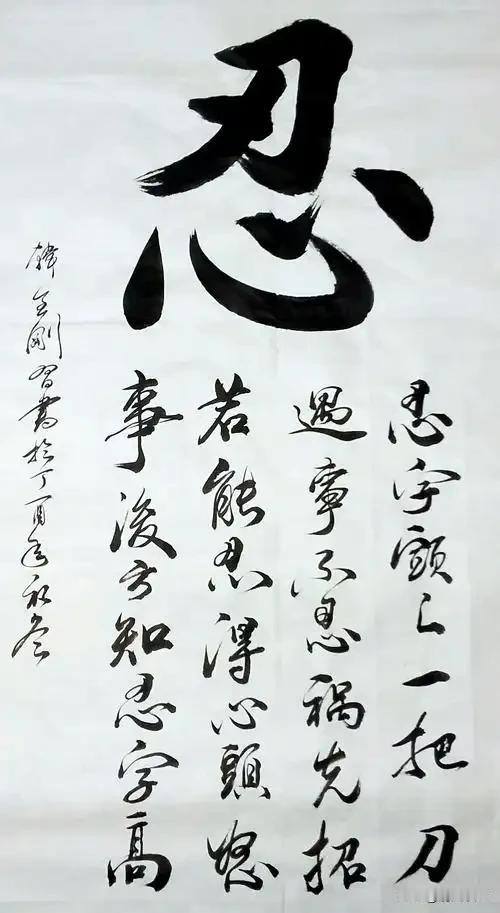 忍
忍字頭上一把刀
遇事不忍禍先招
若能忍得心頭怒
事後方知忍字高
韓金剛習書於丁酉年初冬